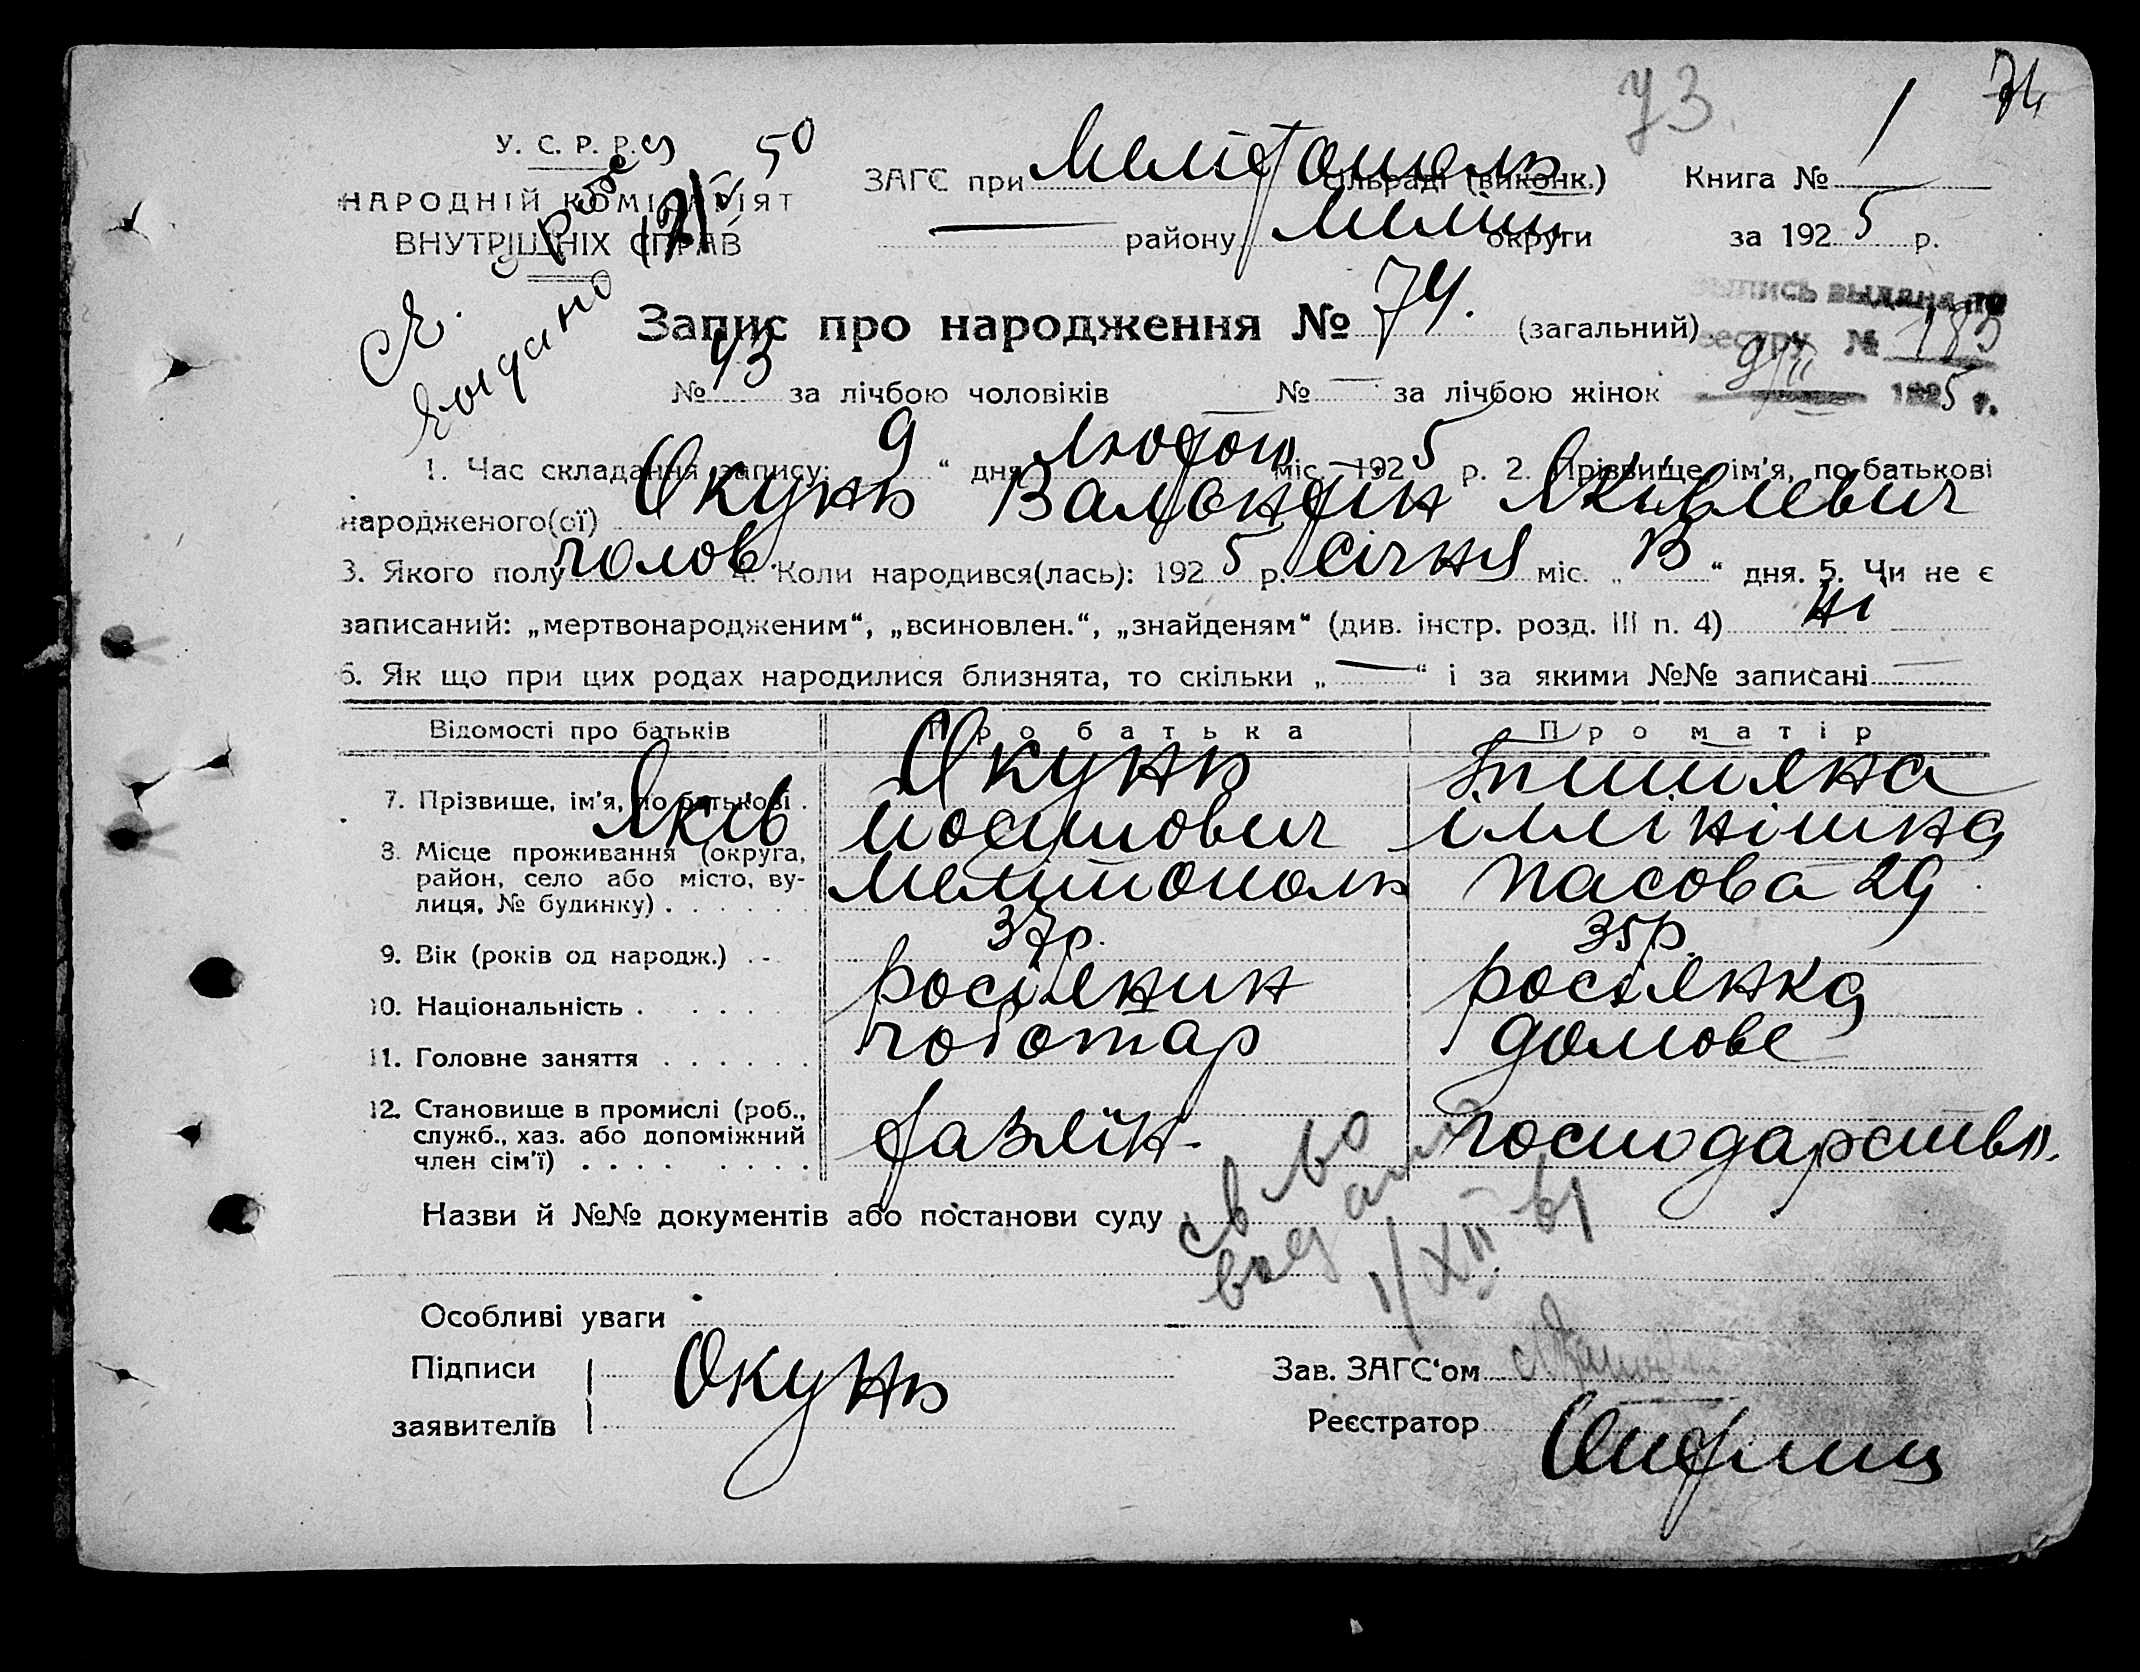 73. 74
У. С. Р. Р. 50
ЗАГС при Мелітополь сільраді (виконк.) Книга № 1
НАРОДНІЙ КОМІСАРІЯТ
ВНУТРІШНІХ СПРАВ
— району Меліт округи за 1925 р.
Запис про народження № 74. (загальний)
выпись выдана по
реестру № 183
1925 г.
№ 43 за лічбою чоловіків № — за лічбою жінок
1. Час складання запису: 9 “ дня лютого міс. 1925 р. 2. Прізвище, ім'я, по-батькові
народженого(ої) Окунь Валентін Яківлевич
3. Якого полу чолов. 4. Коли народився(лась): 1925 р. січня міс. „ 13 “ дня. 5. Чи не є
записаний: „мертвонародженим“, „всиновлен.“, „знайденям“ (див. інстр. розд. III п. 4) ні
6. Як що при цих родах народилися близнята, то скільки „ — “ і за якими №№ записані —
Відомості про батьків Про батька Про матір
7. Прізвище, ім'я, по батькові . Окунь Яків Йосипович
8. Місце проживання (округа,
район, село або місто, ву-
лиця, № будинку) . . . . . . Мелітополь 29
9. Вік (років од народж.) . - 37р. 35р.
10. Національність . . . . . росіянин росіянка
11. Головне заняття . . . . . . чоботар домове
12. Становище в промислі (роб.,
служб., хаз. або допоміжний
член сім'ї) . . . . . . . . господарство.
Назви й №№ документів або постанови суду
св во
выдано
1/XII 61
Особливі уваги
Підписи
заявителів Окунь
Зав. ЗАГС‘ом
Реєстратор